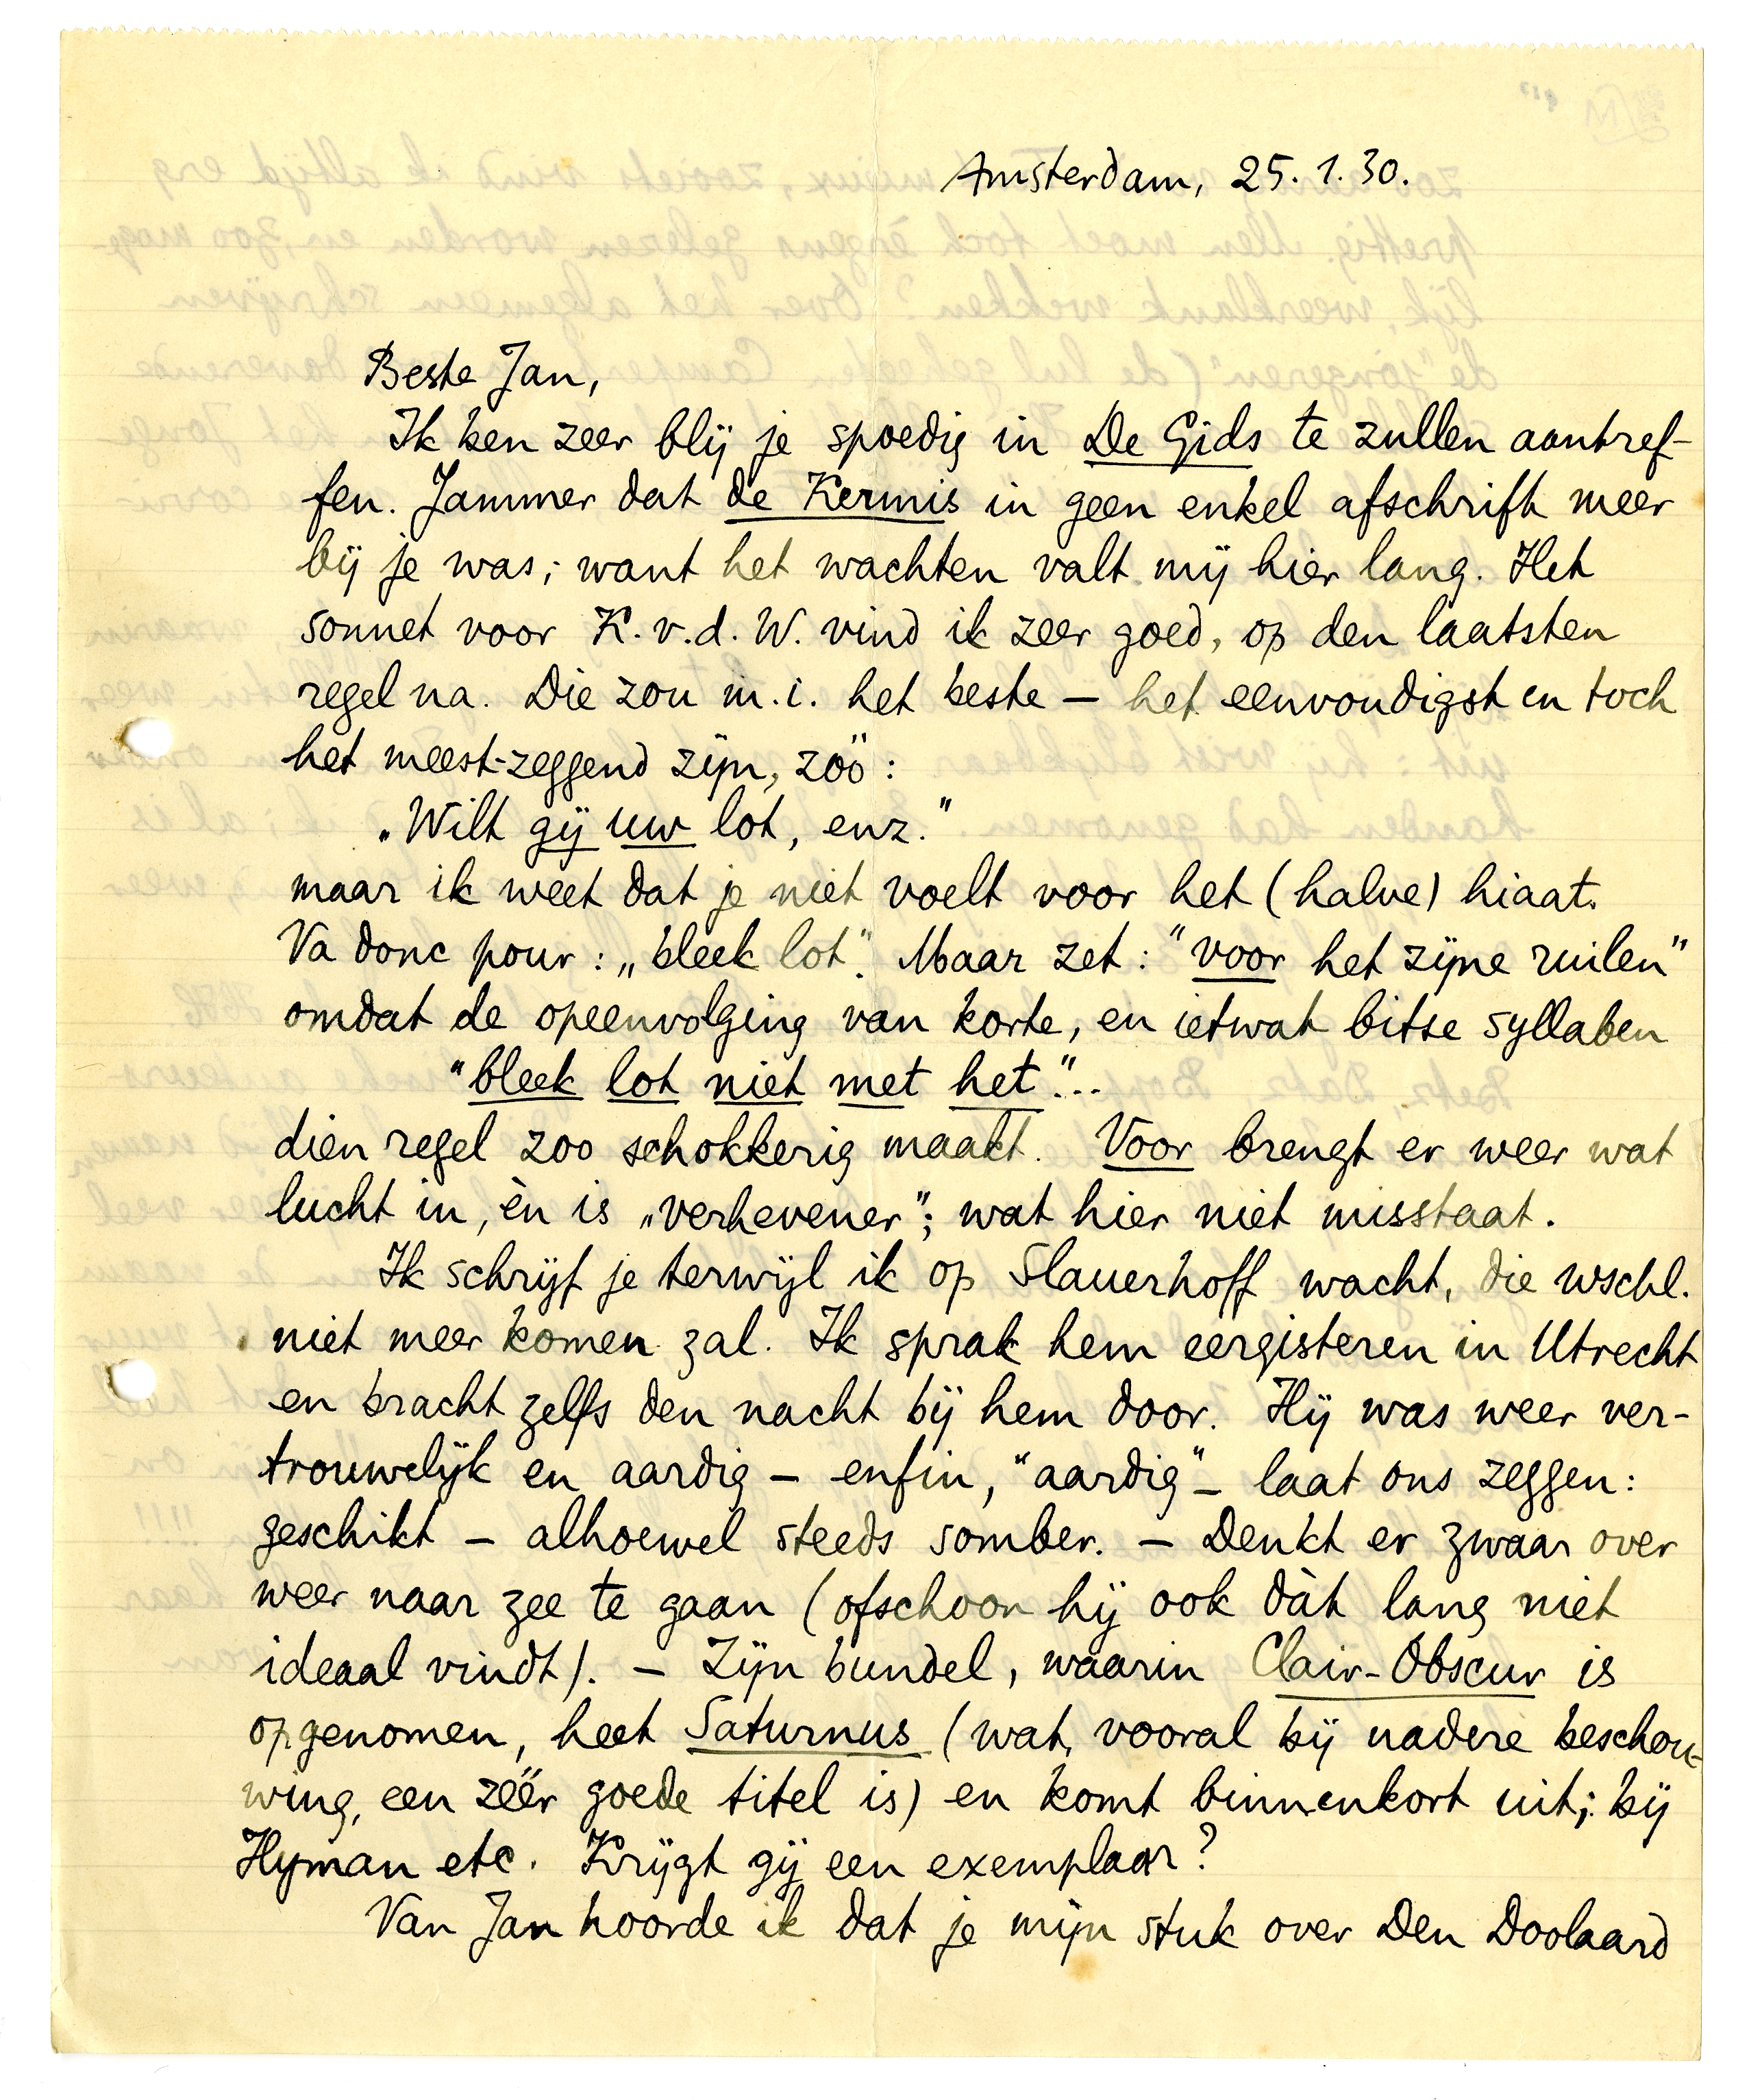 Amsterdam, 25.1.30.
Beste Jan,
Ik ben zeer blij je spoedig in De Gids te zullen aantref-
fen. Jammer dat de Kermis in geen enkel afschrift meer
bij je was; want het wachten valt mij hier lang. Het
sonnet voor K.v.d.W. vind ik zeer goed, op den laatsten
regel na. Die zou m.i. het beste – het eenvoudigst en toch
het meest-zeggend zijn, zóó:
„Wilt gij uw lot, enz."
maar ik weet dat je niet voelt voor het (halve) hiaat.
Va donc pour: „bleek lot". Maar zet: "voor het zijne ruilen"
omdat de opeenvolging van korte, en ietwat bitse syllaben
"bleek lot niet met het"...
dien regel zoo schokkerig maakt. Voor brengt er weer wat
lucht in, èn is „verhevener"; wat hier niet misstaat.
Ik schrijf je terwijl ik op Slauerhoff wacht, die wschl.
niet meer komen zal. Ik sprak hem eergisteren in Utrecht
en bracht zelfs den nacht bij hem door. Hij was weer ver-
trouwelijk en aardig – enfin, "aardig" – laat ons zeggen:
geschikt – alhoewel steeds somber. – Denkt er zwaar over
weer naar zee te gaan (ofschoon hij ook dàt lang niet
ideaal vindt). – Zijn bundel, waarin Clair-Obscur is
opgenomen, heet Saturnus (wat, vooral bij nadere beschou-
wing, een zéér goede titel is) en komt binnenkort uit; bij
Hyman etc. Krijgt gij een exemplaar?
Van Jan hoorde ik dat je mijn stuk over Den Doolaard